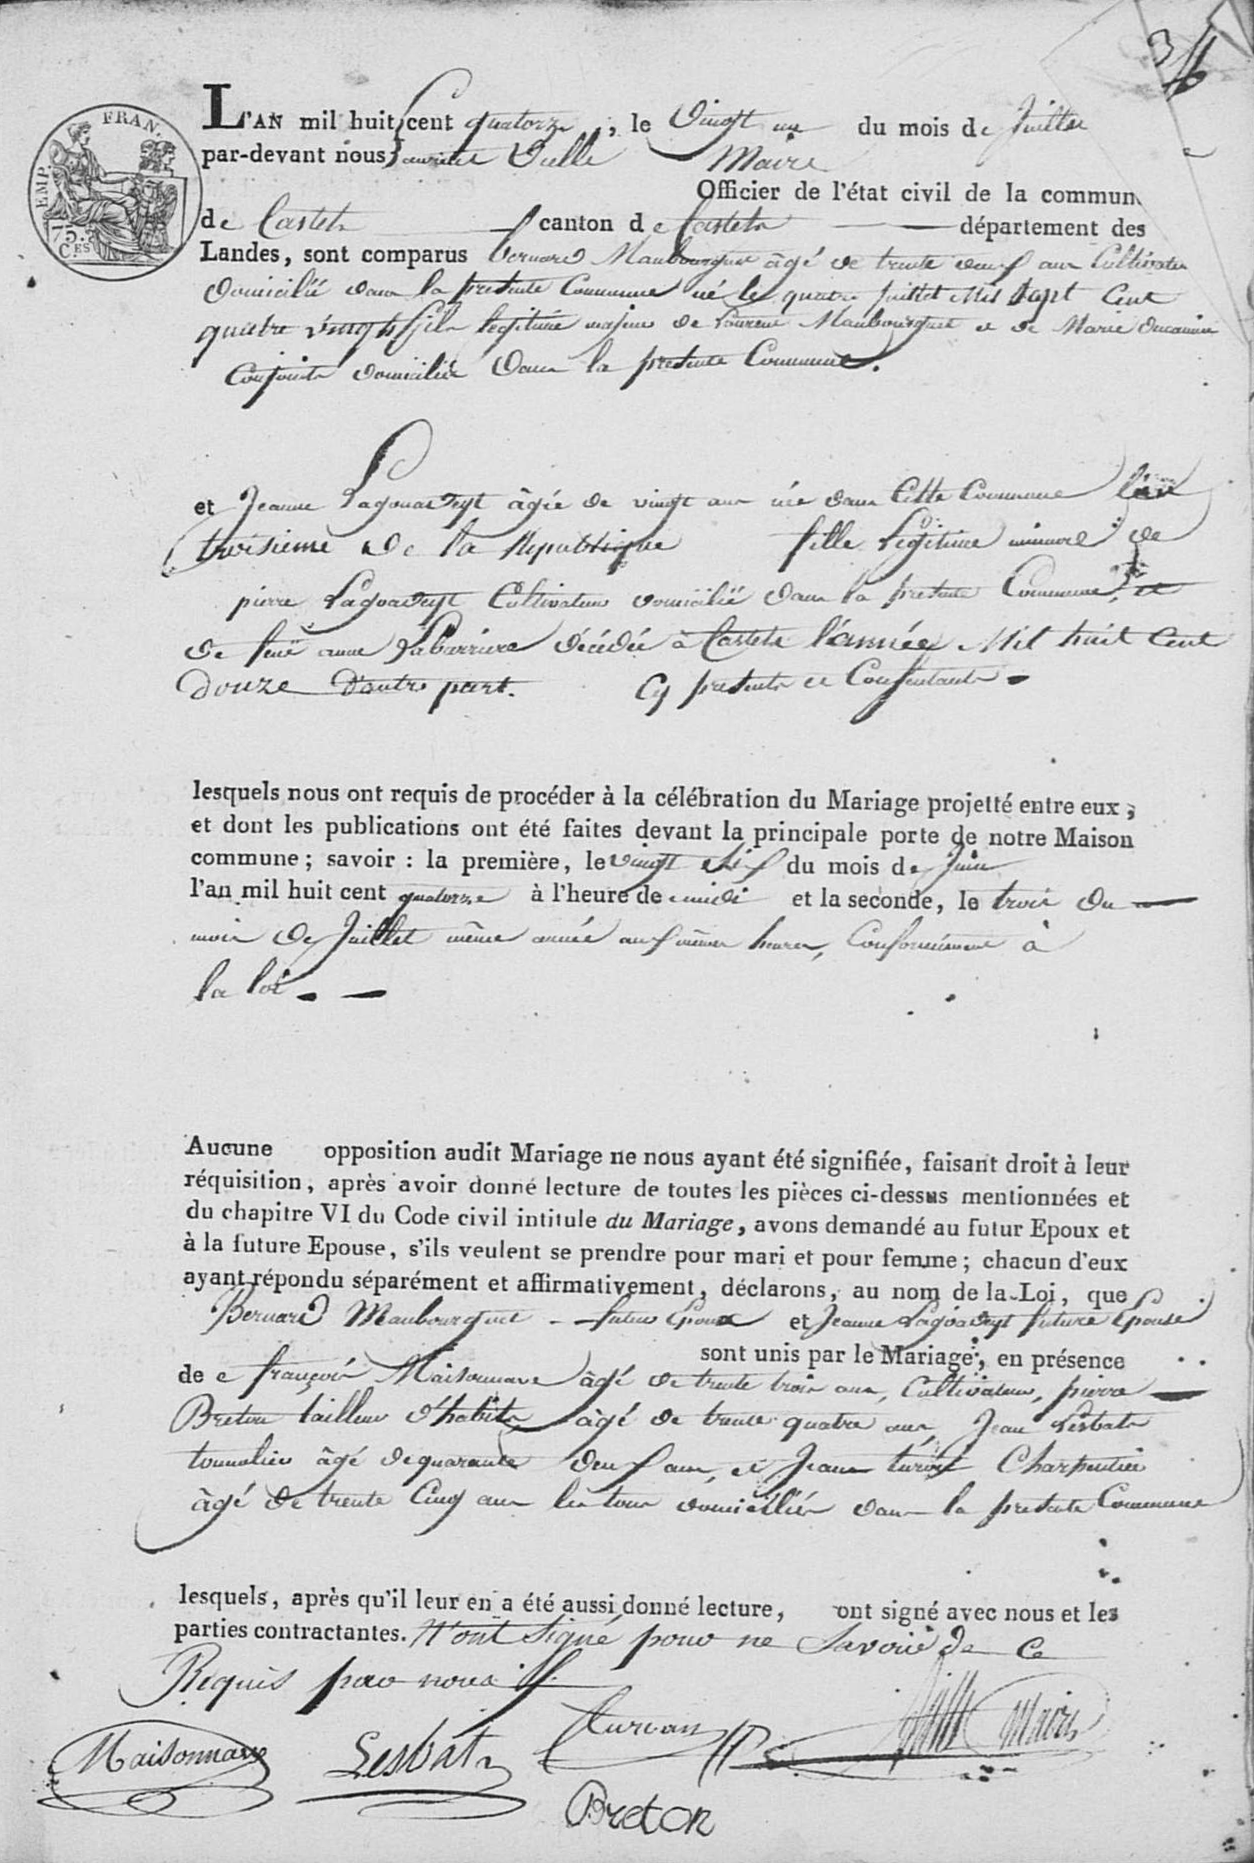 36
L'AN mil huit cent quatorze, le vingt un du mois de Juillet
par-devant nous Laurent Maire
Officier de l'état civil de la commun
de Castets canton de Castets département des
Landes, sont comparus bernard Maubourguet âgé de trente deux ans Cultivateur
domicilié dans la presente Commune né le quatre juillet Mil Sept Cent
quatre vingts fils legitime majeur de Laurent Maubourguet et de Marie
Conjoints domiciliés dans la presente Commune.
et Jeanne Lagoardeyt âgée de vingt ans née dans Cette Commune l'an
troisieme de la Republique fille Légitime mineure de
pierre Lagoardeyt Cultivateur domicilié dans la presente Commune, et
de feüe anne Labarrière décédée à Castets l'année Mil huit Cent
douze d'autre part. Cy presents et Consentants
lesquels nous ont requis de procéder à la célébration du Mariage projetté entre eux;
et dont les publications ont été faites devant la principale porte de notre Maison
commune; savoir : la première, le vingt six du mois de Juin
l'an mil huit cent quatorze à l'heure de midi et la seconde, le trois du
mois de Juillet même année aux mêmes heures, Conformément à
la loi
Aucune opposition audit Mariage ne nous ayant été signifiée, faisant droit à leur
réquisition, après avoir donné lecture de toutes les pièces ci-dessus mentionnées et
du chapitre VI du Code civil intitule du Mariage, avons demandé au futur Epoux et
à la future Epouse, s'ils veulent se prendre pour mari et pour femme; chacun d'eux
ayant répondu séparément et affirmativement, déclarons, au nom de la Loi, que
Bernard Maubourguet futur Epoux et Jeanne Lagoardeyt future Epouse
sont unis par le Mariage, en présence
de françois Maisonnave âgé de trente trois ans, Cultivateur, pierre
Breton tailleur d'habits âgé de trente quatre ans, Jean Lesbats
tonnelier âgé de quarante deux ans, et Jean Charpentier
âgé de trente Cinq ans les tous domiciliés dans la presente Commune
lesquels, après qu'il leur en a été aussi donné lecture, ont signé avec nous et les
parties contractantes. N'ont Signé pour ne Savoir de Ce
Requis par nous
Maisonnave Lesbats Maire
Breton
EMP. FRAN.
75 C.ES